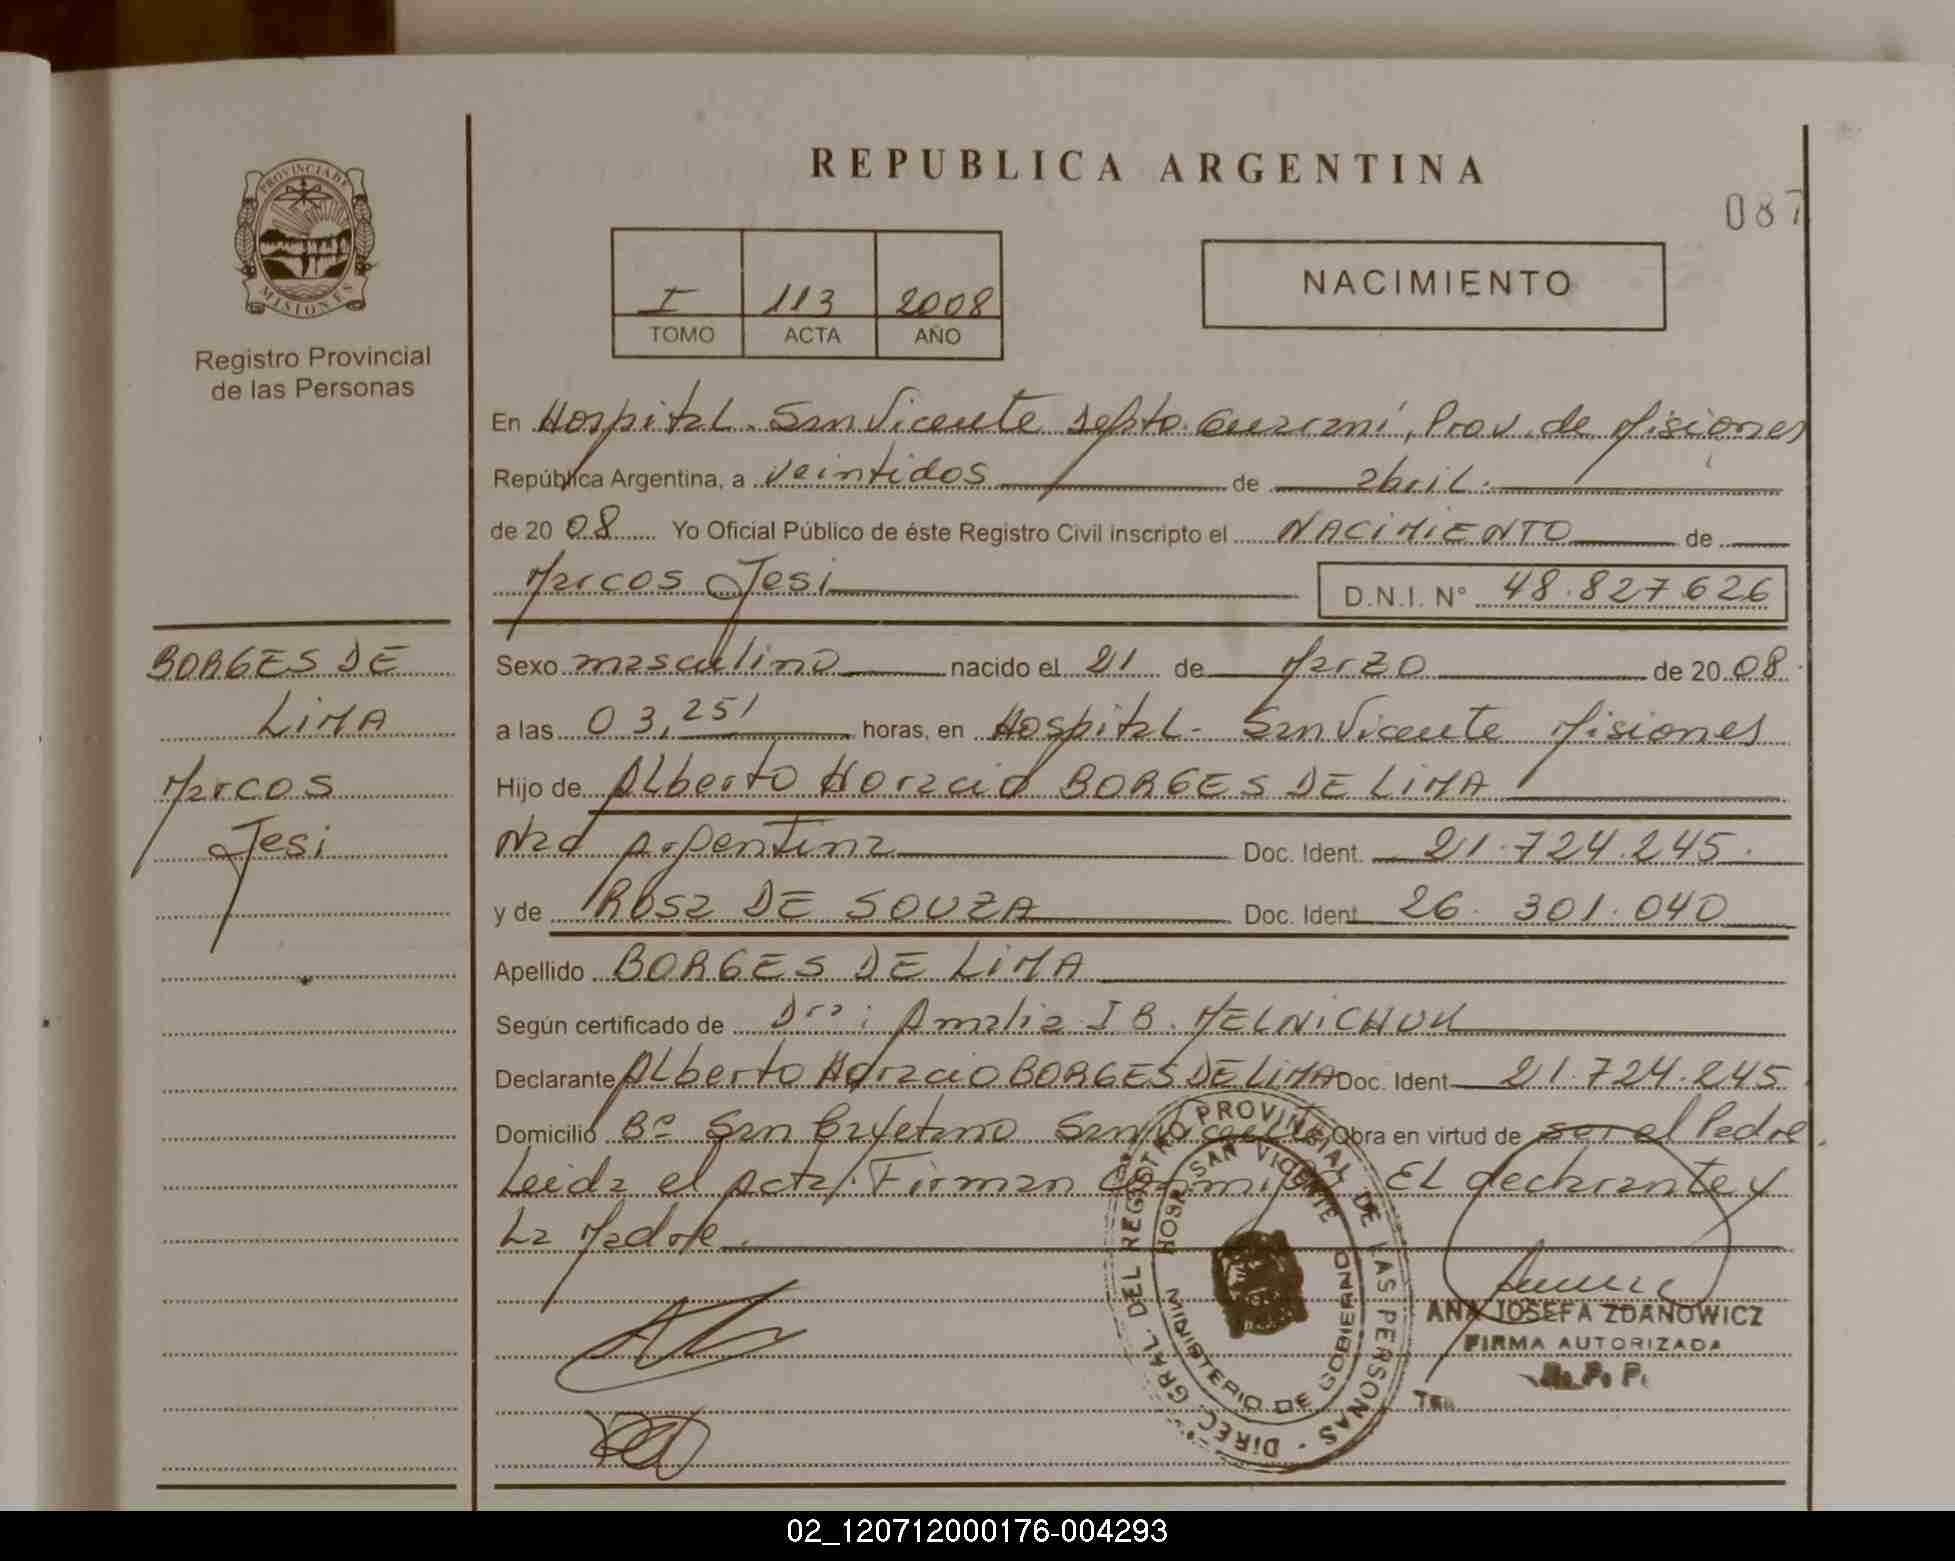 REPUBLICA ARGENTINA
087
PROVINCIA DE
MISIONES
Registro Provincial
de las Personas
I 113 2008
TOMO ACTA AÑO
NACIMIENTO
En Hospital - San Vicente Depto. Guaraní, Prov. de Misiones
República Argentina, a veintidos de abril.
de 20 08 Yo Oficial Público de éste Registro Civil inscripto el NACIMIENTO de
Marcos Jesi D.N.I. N° 48.827.626
BORGES DE
LIMA
Marcos
Jesi
Sexo masculino nacido el 21 de Marzo de 20 08
a las 03,25' horas, en Hospital - San Vicente Misiones
Hijo de Alberto Horacio BORGES DE LIMA
Nac Argentina Doc. Ident. 21.724.245.
y de Rosa DE SOUZA Doc. Ident. 26.301.040
Apellido BORGES DE LIMA
Según certificado de Dra: Amalia I B. MELNICHUK
Declarante Alberto Horacio BORGES DE LIMA Doc. Ident. 21.724.245
Domicilio B° San Cayetano San Vicente Obra en virtud de ser el Padre.
Leida el Acta, Firman Conmigo El declarante y
La Madre.
DIREC. GRAL. DEL REGISTRO PROVINCIAL DE LAS PERSONAS
HOSP. SAN VICENTE
MINISTERIO DE GOBIERNO
ANA JOSEFA ZDANOWICZ
FIRMA AUTORIZADA
R. P. P.
02_120712000176-004293